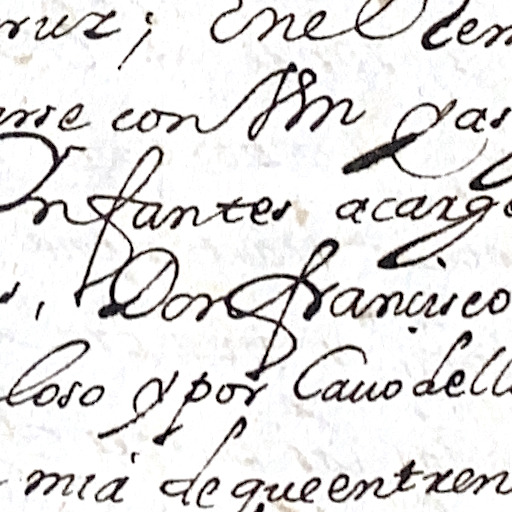 ruz; Enel tem
arse con Vm y as
Ynfantes acargo
s, Don francisco
loso y por Cauo dell
mia de que entren